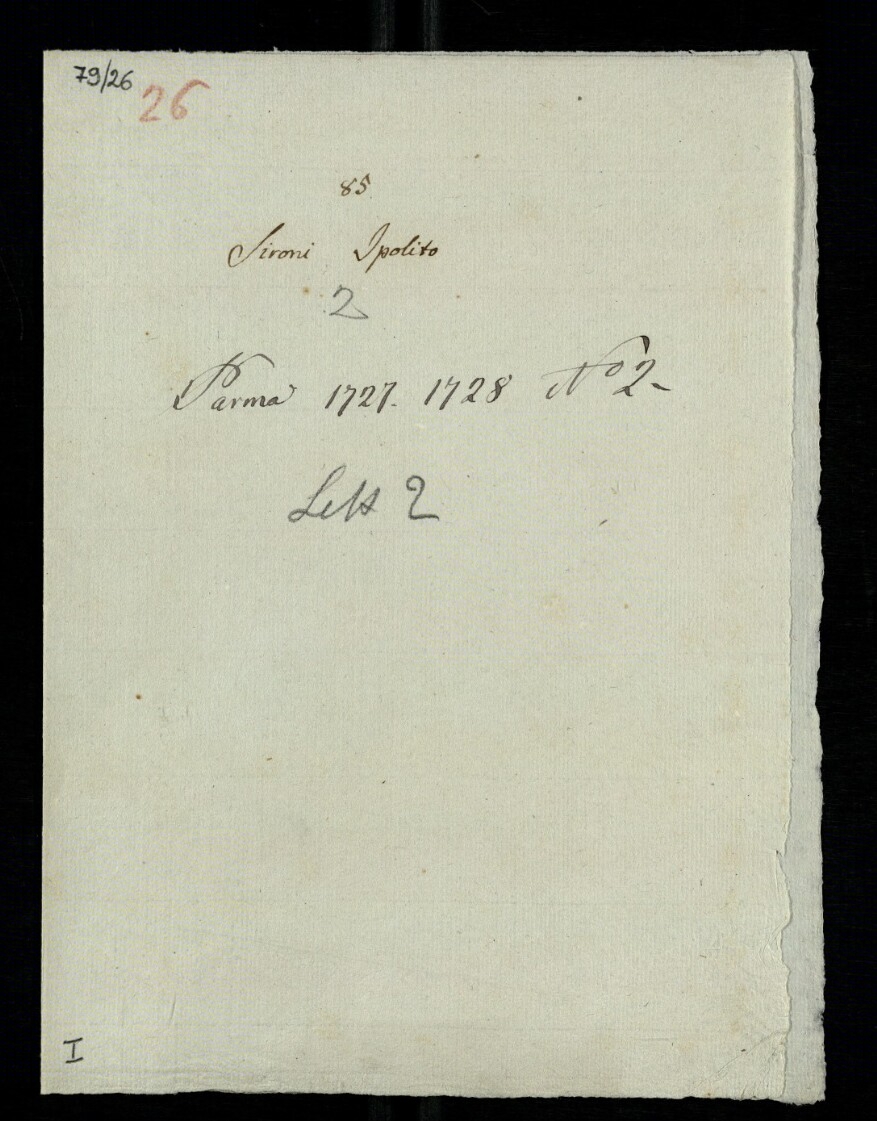 79/26
26
85
Sironi Ipolito
2
Parma 1727. 1728 No 2-
Lett 2
I